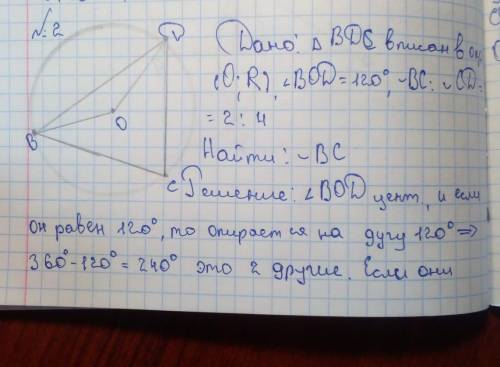 №2
Дано: Δ BDC вписан в окр
(O; R), ∠BOD = 120°, ◡BC: ◡CD=
= 2 : 4
Найти: ◡BC
Решение: ∠BOD цент, и если
он равен 120°, то опирается на дугу 120° ⇒
360° - 120° = 240° это 2 другие. Если они
D
O
B
C